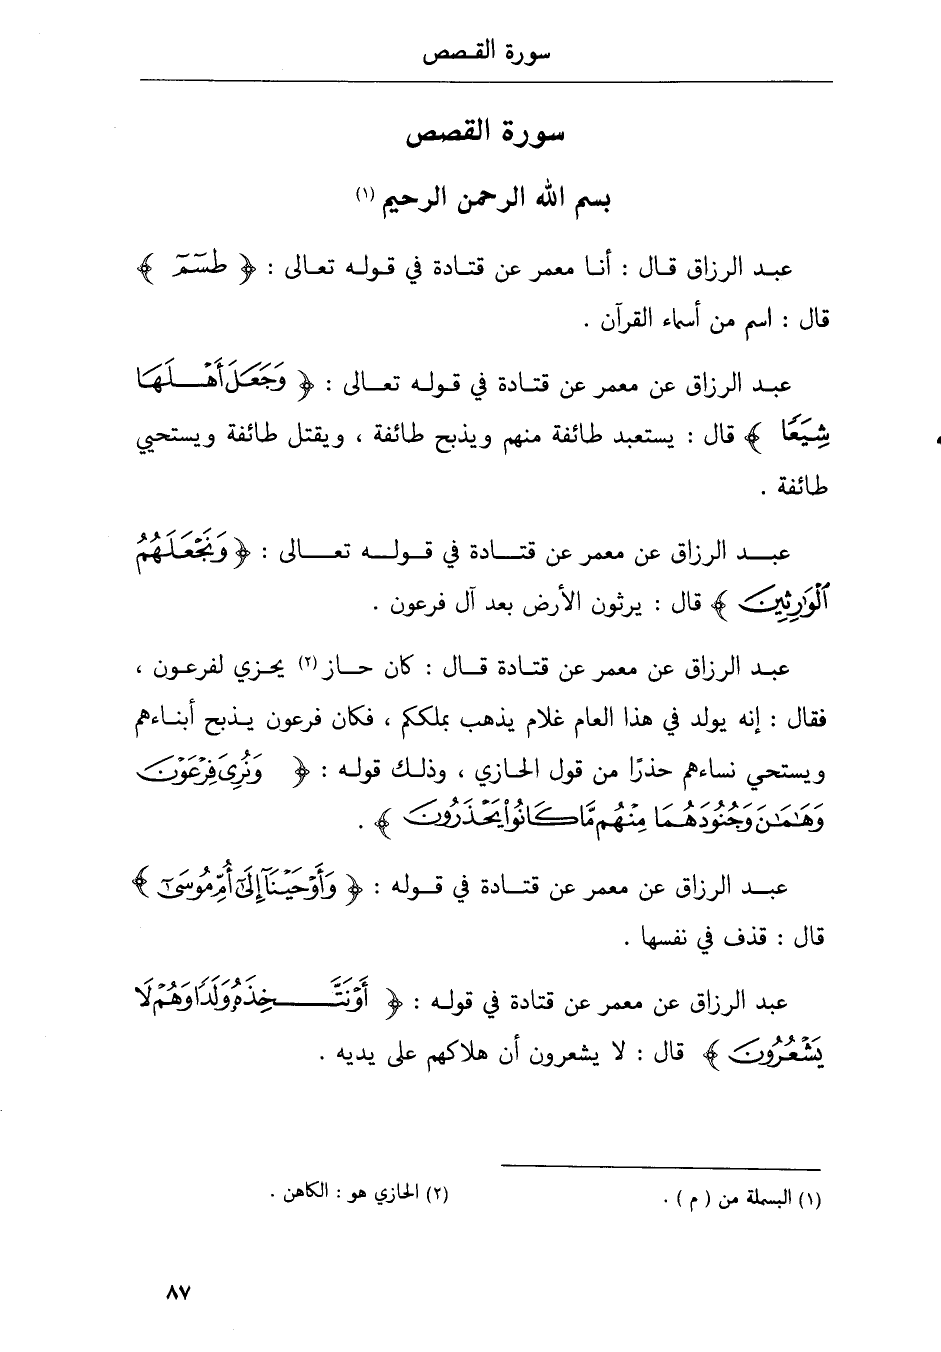 سورة القصص
سورة القصص
بسم الله الرحمن الرحيم (١)
عبد الرزاق قال : أنا معمر عن قتادة في قوله تعالى : ﴿ طسٓمٓ ﴾
قال : اسم من أسماء القرآن .
عبد الرزاق عن معمر عن قتادة في قوله تعالى : ﴿ وَجَعَلَ أَهْلَهَا
شِيَعًا ﴾ قال : يستعبد طائفة منهم ويذبح طائفة ، ويقتل طائفة ويستحيي
طائفة .
عبد الرزاق عن معمر عن قتادة في قوله تعالى : ﴿ وَنَجْعَلَهُمُ
ٱلْوَٰرِثِينَ ﴾ قال : يرثون الأرض بعد آل فرعون .
عبد الرزاق عن معمر عن قتادة قال : كان حاز (٢) يحزي لفرعون ،
فقال : إنه يولد في هذا العام غلام يذهب بملككم ، فكان فرعون يذبح أبناءهم
ويستحي نساءهم حذرًا من قول الحازي ، وذلك قوله : ﴿ وَنُرِىَ فِرْعَوْنَ
وَهَٰمَٰنَ وَجُنُودَهُمَا مِنْهُم مَّا كَانُوا۟ يَحْذَرُونَ ﴾ .
عبد الرزاق عن معمر عن قتادة في قوله : ﴿ وَأَوْحَيْنَآ إِلَىٰٓ أُمِّ مُوسَىٰٓ ﴾
قال : قذف في نفسها .
عبد الرزاق عن معمر عن قتادة في قوله : ﴿ أَوْ نَتَّخِذَهُۥ وَلَدًا وَهُمْ لَا
يَشْعُرُونَ ﴾ قال : لا يشعرون أن هلاكهم على يديه .
(١) البسملة من ( م ) . (٢) الحازي هو : الكاهن .
٨٧